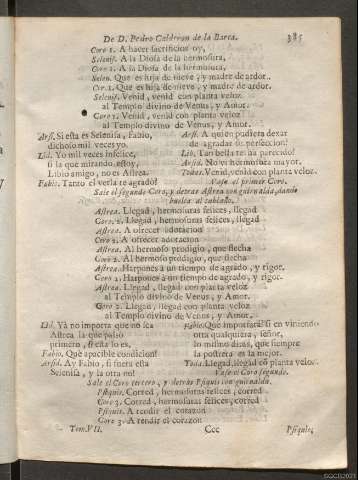 De D. Pedro Calderon de la Barca. 385
Coro 1. A hacer sacrificios oy,
Selenis. A la Diosa de la hermosura,
Coro 1. A la Diosa de la hermosura,
Selen. Que es hija de nieve, y madre de ardor.
Co. 1. Que es hija de nieve, y madre de ardor.
Selenis. Venid, venid con planta veloz
al Templo divino de Venus, y Amor.
Coro 1. Venid, venid con planta veloz
al Templo divino de Venus, y Amor.
Arsi. Si esta es Selenisa, Fabio,
dichoso mil veces yo.
Lid. Yo mil veces infelice,
si la que mirando estoy,
Libio amigo, no es Astrea.
Fabio. Tanto el verla te agradò?
Arsi. A quien pudiera dexar
de agradar su perfeccion!
Lid. Tan bella te ha parecido?
Arsid. No vi hermosura mayor.
Todas. Venid, venid con planta veloz.
Vase el primer Coro.
Sale el segundo Coro, y detràs Astrea con guirnalda, dando
buelta al tablado.
Astrea. Llegad, hermosuras felices, llegad
Coro 2. Llegad, hermosuras felices, llegad
Astrea. A ofrecer adoracion
Coro 2. A ofrecer adoracion
Astrea. Al hermoso prodigio, que flecha
Coro 2. Al hermoso prodigio, que flecha
Astrea. Harpones à un tiempo de agrado, y rigor.
Coro 2. Harpones à un tiempo de agrado, y rigor.
Astrea. Llegad, llegad con planta veloz
al Templo divino de Venus, y Amor.
Coro 2. Llegad, llegad con planta veloz
al Templo divino de Venus, y Amor.
Lid. Yà no importa que no sea
Astrea la que passò
primero, si esta lo es.
Fabio. Què apacible condicion!
Arsid. Ay Fabio, si fuera esta
Selenisa, y la otra no!
Fabio. Què importarà? si en viniendo
otra qualquiera, señor,
lo mismo diràs, que siempre
la postrera es la mejor.
Toda. Llegad, llegad con planta veloz.
Vase el Coro segundo.
Sale el Coro tercero, y detràs Psiquis con guirnalda.
Psiquis. Corred, hermosuras felices, corred
Coro 3. Corred, hermosuras felices, corred
Psiquis. A rendir el corazon
Coro 3. A rendir el corazon
Tom. VII. Ccc Psiquis;